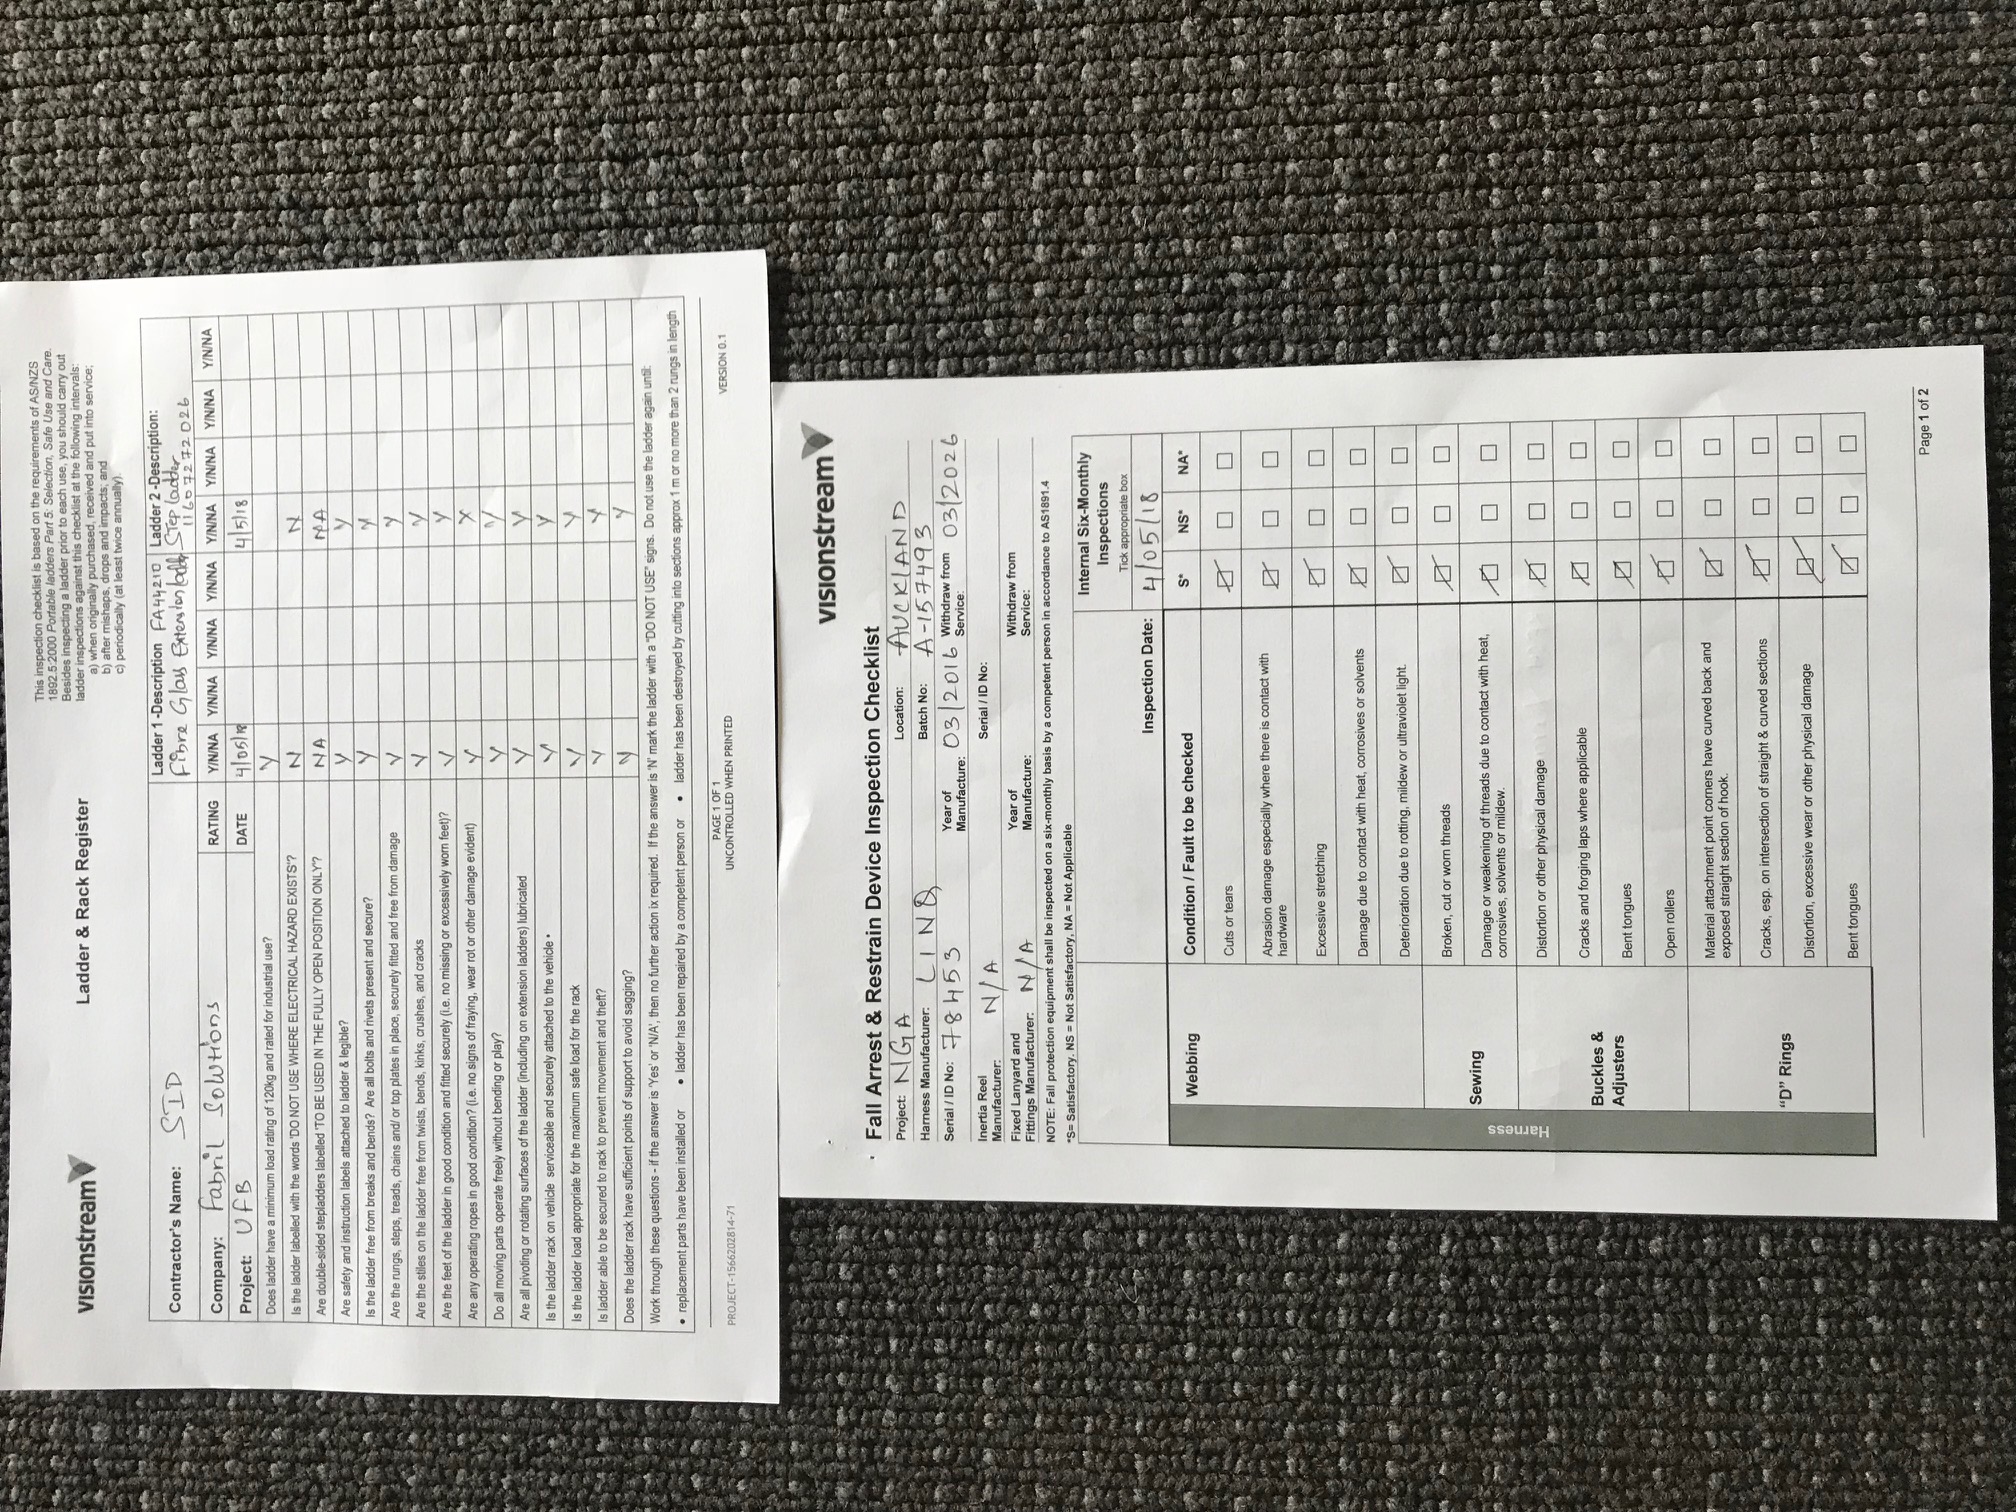 This inspection checklist is based on the requirements of AS/NZS
1892.5:2000 Portable ladders Part 5: Selection, Safe Use and Care.
Besides inspecting a ladder prior to each use, you should carry out
ladder inspections against this checklist at the following intervals:
a) when originally purchased, received and put into service;
b) after mishaps, drops and impacts; and
c) periodically (at least twice annually).
visionstream
Ladder & Rack Register
Contractor's Name: SID
Ladder 1 -Description FA44210
Fibre Glass Extension ladder
Ladder 2 -Description:
Step ladder
11607272026
Company: Fabril Solutions RATING Y/N/NA Y/N/NA Y/N/NA Y/N/NA Y/N/NA Y/N/NA Y/N/NA Y/N/NA
Project: UFB DATE 4/05/18 4/5/18
Does ladder have a minimum load rating of 120kg and rated for industrial use? Y
Is the ladder labelled with the words 'DO NOT USE WHERE ELECTRICAL HAZARD EXISTS'? N N
Are double-sided stepladders labelled 'TO BE USED IN THE FULLY OPEN POSITION ONLY'? NA NA
Are safety and instruction labels attached to ladder & legible? Y Y
Is the ladder free from breaks and bends? Are all bolts and rivets present and secure? Y Y
Are the rungs, steps, treads, chains and/ or top plates in place, securely fitted and free from damage Y Y
Are the stiles on the ladder free from twists, bends, kinks, crushes, and cracks Y Y
Are the feet of the ladder in good condition and fitted securely (i.e. no missing or excessively worn feet)? Y Y
Are any operating ropes in good condition? (i.e. no signs of fraying, wear rot or other damage evident) Y
Do all moving parts operate freely without bending or play? Y Y
Are all pivoting or rotating surfaces of the ladder (including on extension ladders) lubricated Y Y
Is the ladder rack on vehicle serviceable and securely attached to the vehicle • Y Y
Is the ladder load appropriate for the maximum safe load for the rack Y Y
Is ladder able to be secured to rack to prevent movement and theft? Y Y
Does the ladder rack have sufficient points of support to avoid sagging? Y
Work through these questions - if the answer is 'Yes' or 'N/A', then no further action ix required. If the answer is 'N' mark the ladder with a "DO NOT USE" signs. Do not use the ladder again until:
• replacement parts have been installed or • ladder has been repaired by a competent person or • ladder has been destroyed by cutting into sections approx 1 m or no more than 2 rungs in length
PROJECT-1566202814-71
PAGE 1 OF 1
UNCONTROLLED WHEN PRINTED
VERSION 0.1
visionstream
Fall Arrest & Restrain Device Inspection Checklist
Project: NGA Location: AUCKLAND
Harness Manufacturer: LINQ Batch No: A-157493
Serial / ID No: 78453 Year of Manufacture: 03/2016 Withdraw from Service: 03/2026
Inertia Reel Manufacturer: N/A Serial / ID No:
Fixed Lanyard and Fittings Manufacturer: N/A Year of Manufacture: Withdraw from Service:
NOTE: Fall protection equipment shall be inspected on a six-monthly basis by a competent person in accordance to AS1891.4
*S= Satisfactory. NS = Not Satisfactory, NA = Not Applicable
Internal Six-Monthly
Inspections
Tick appropriate box
Inspection Date: 4/05/18
Harness
Webbing Condition / Fault to be checked S* NS* NA*
Cuts or tears
Abrasion damage especially where there is contact with
hardware
Excessive stretching
Damage due to contact with heat, corrosives or solvents
Deterioration due to rotting, mildew or ultraviolet light.
Sewing
Broken, cut or worn threads
Damage or weakening of threads due to contact with heat,
corrosives, solvents or mildew.
Buckles &
Adjusters
Distortion or other physical damage
Cracks and forging laps where applicable
Bent tongues
Open rollers
"D" Rings
Material attachment point corners have curved back and
exposed straight section of hook.
Cracks, esp. on intersection of straight & curved sections
Distortion, excessive wear or other physical damage
Bent tongues
Page 1 of 2